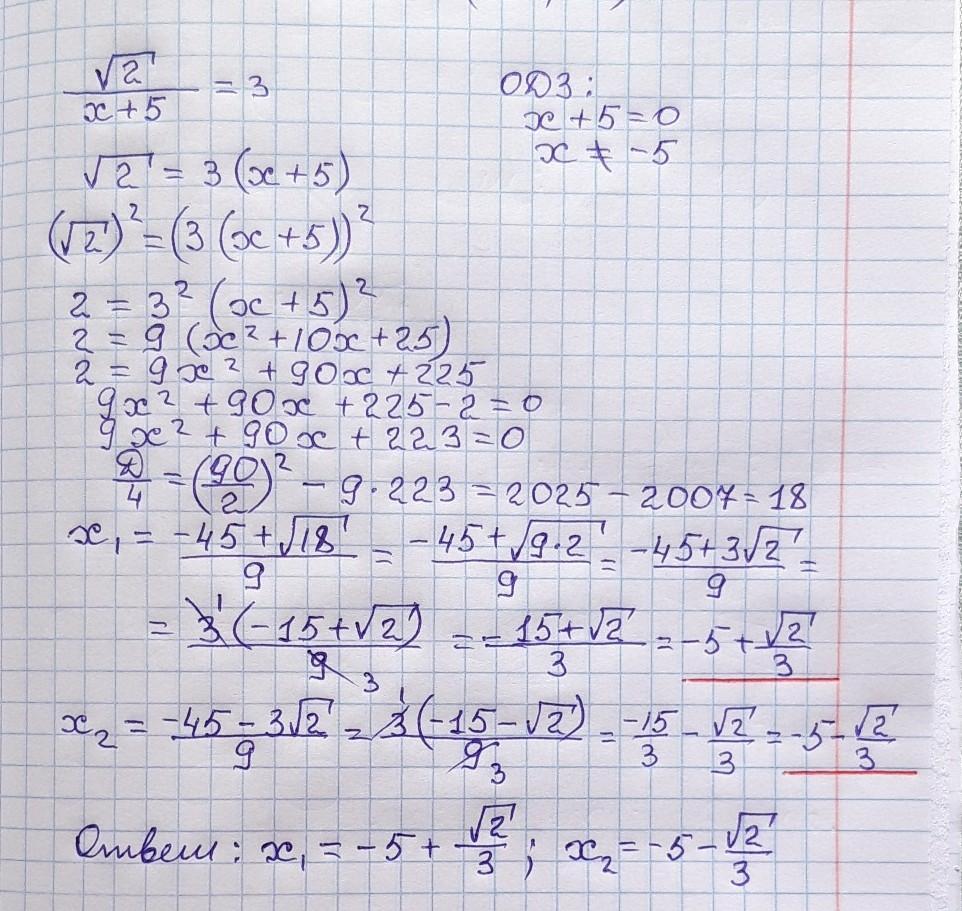 √2/(x+5) = 3
ОДЗ:
x+5=0
x ≠ -5
√2 = 3(x+5)
(√2)² = (3(x+5))²
2 = 3² (x+5)²
2 = 9 (x²+10x+25)
2 = 9x² + 90x + 225
9x² + 90x + 225 - 2 = 0
9x² + 90x + 223 = 0
D/4 = (90/2)² - 9·223 = 2025 - 2007 = 18
x₁ = (-45+√18)/9 = (-45+√(9·2))/9 = (-45+3√2)/9 =
= 3¹(-15+√2)/9₃ = -(15+√2)/3 = -5 + √2/3
x₂ = (-45-3√2)/9 = 3¹(-15-√2)/9₃ = -15/3 - √2/3 = -5 - √2/3
Ответ: x₁ = -5 + √2/3; x₂ = -5 - √2/3